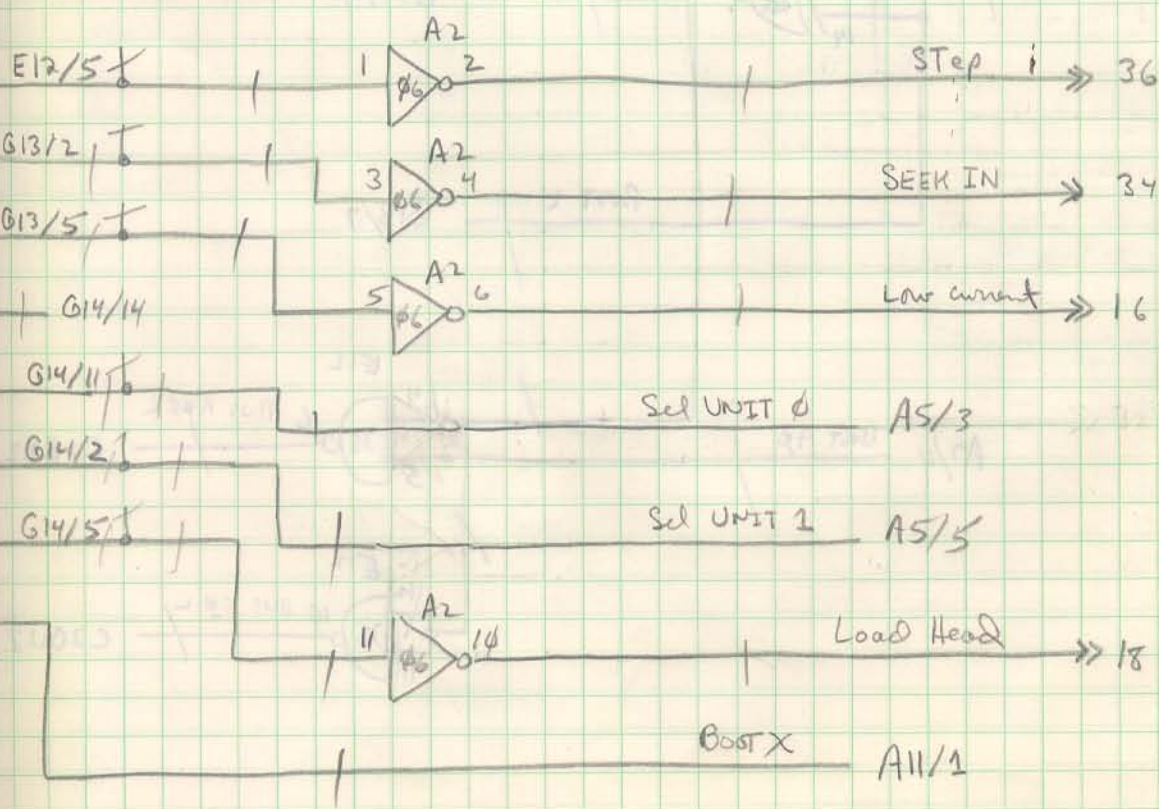 A2
E12/5 1 ø6 2 STep 36
G13/2 A2
3 ø6 4 SEEK IN 34
G13/5 A2
G14/14 5 ø6 6 Low current 16
G14/11
Sel UNIT ø A5/3
G14/2
G14/5 Sel UNIT 1 A5/5
A2
11 ø6 10 Load Head 18
BOOT X A11/1